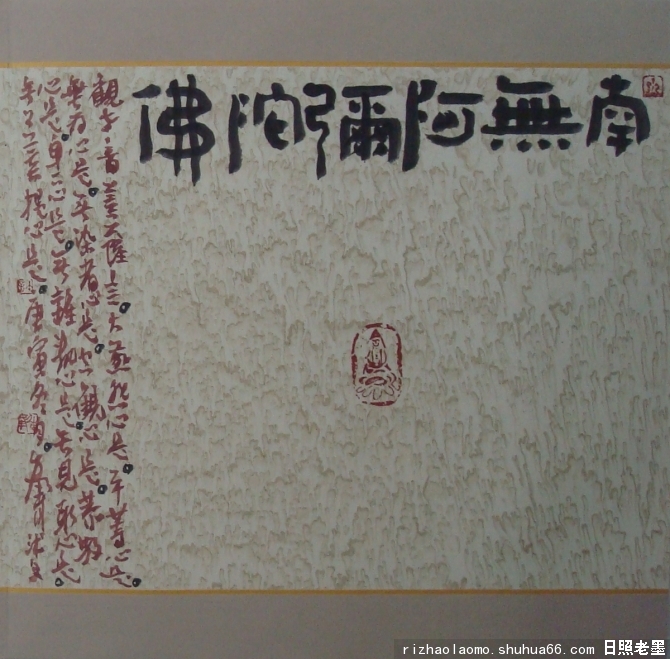 南無阿彌陀佛
觀世音菩薩言大慈悲心是平等心是
無為心是無染著心是空觀心是恭敬
心是卑下心是無雜亂心是無見取心是
無上菩提心是庚寅冬月
rizhaolaomo.shuhua66.com 日照老墨